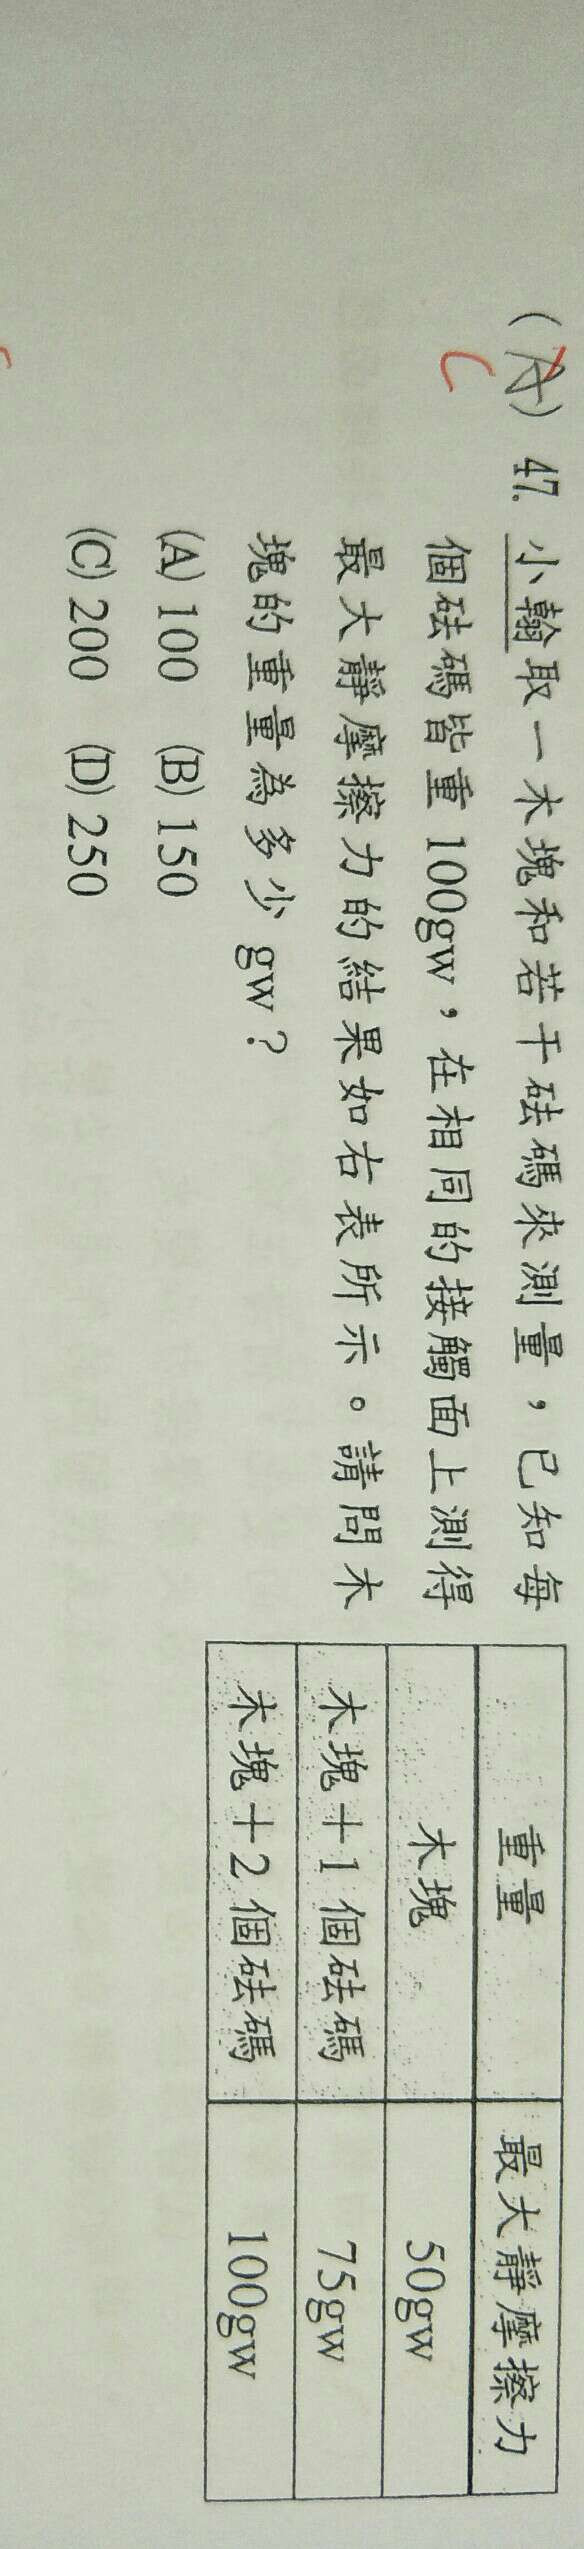 (A) 47. 小翰取一木塊和若干砝碼來測量，已知每
C
個砝碼皆重100gw，在相同的接觸面上測得
最大靜摩擦力的結果如右表所示。請問木
塊的重量為多少gw？
(A) 100 (B) 150
(C) 200 (D) 250
重量 最大靜摩擦力
木塊 50gw
木塊＋1個砝碼 75gw
木塊＋2個砝碼 100gw